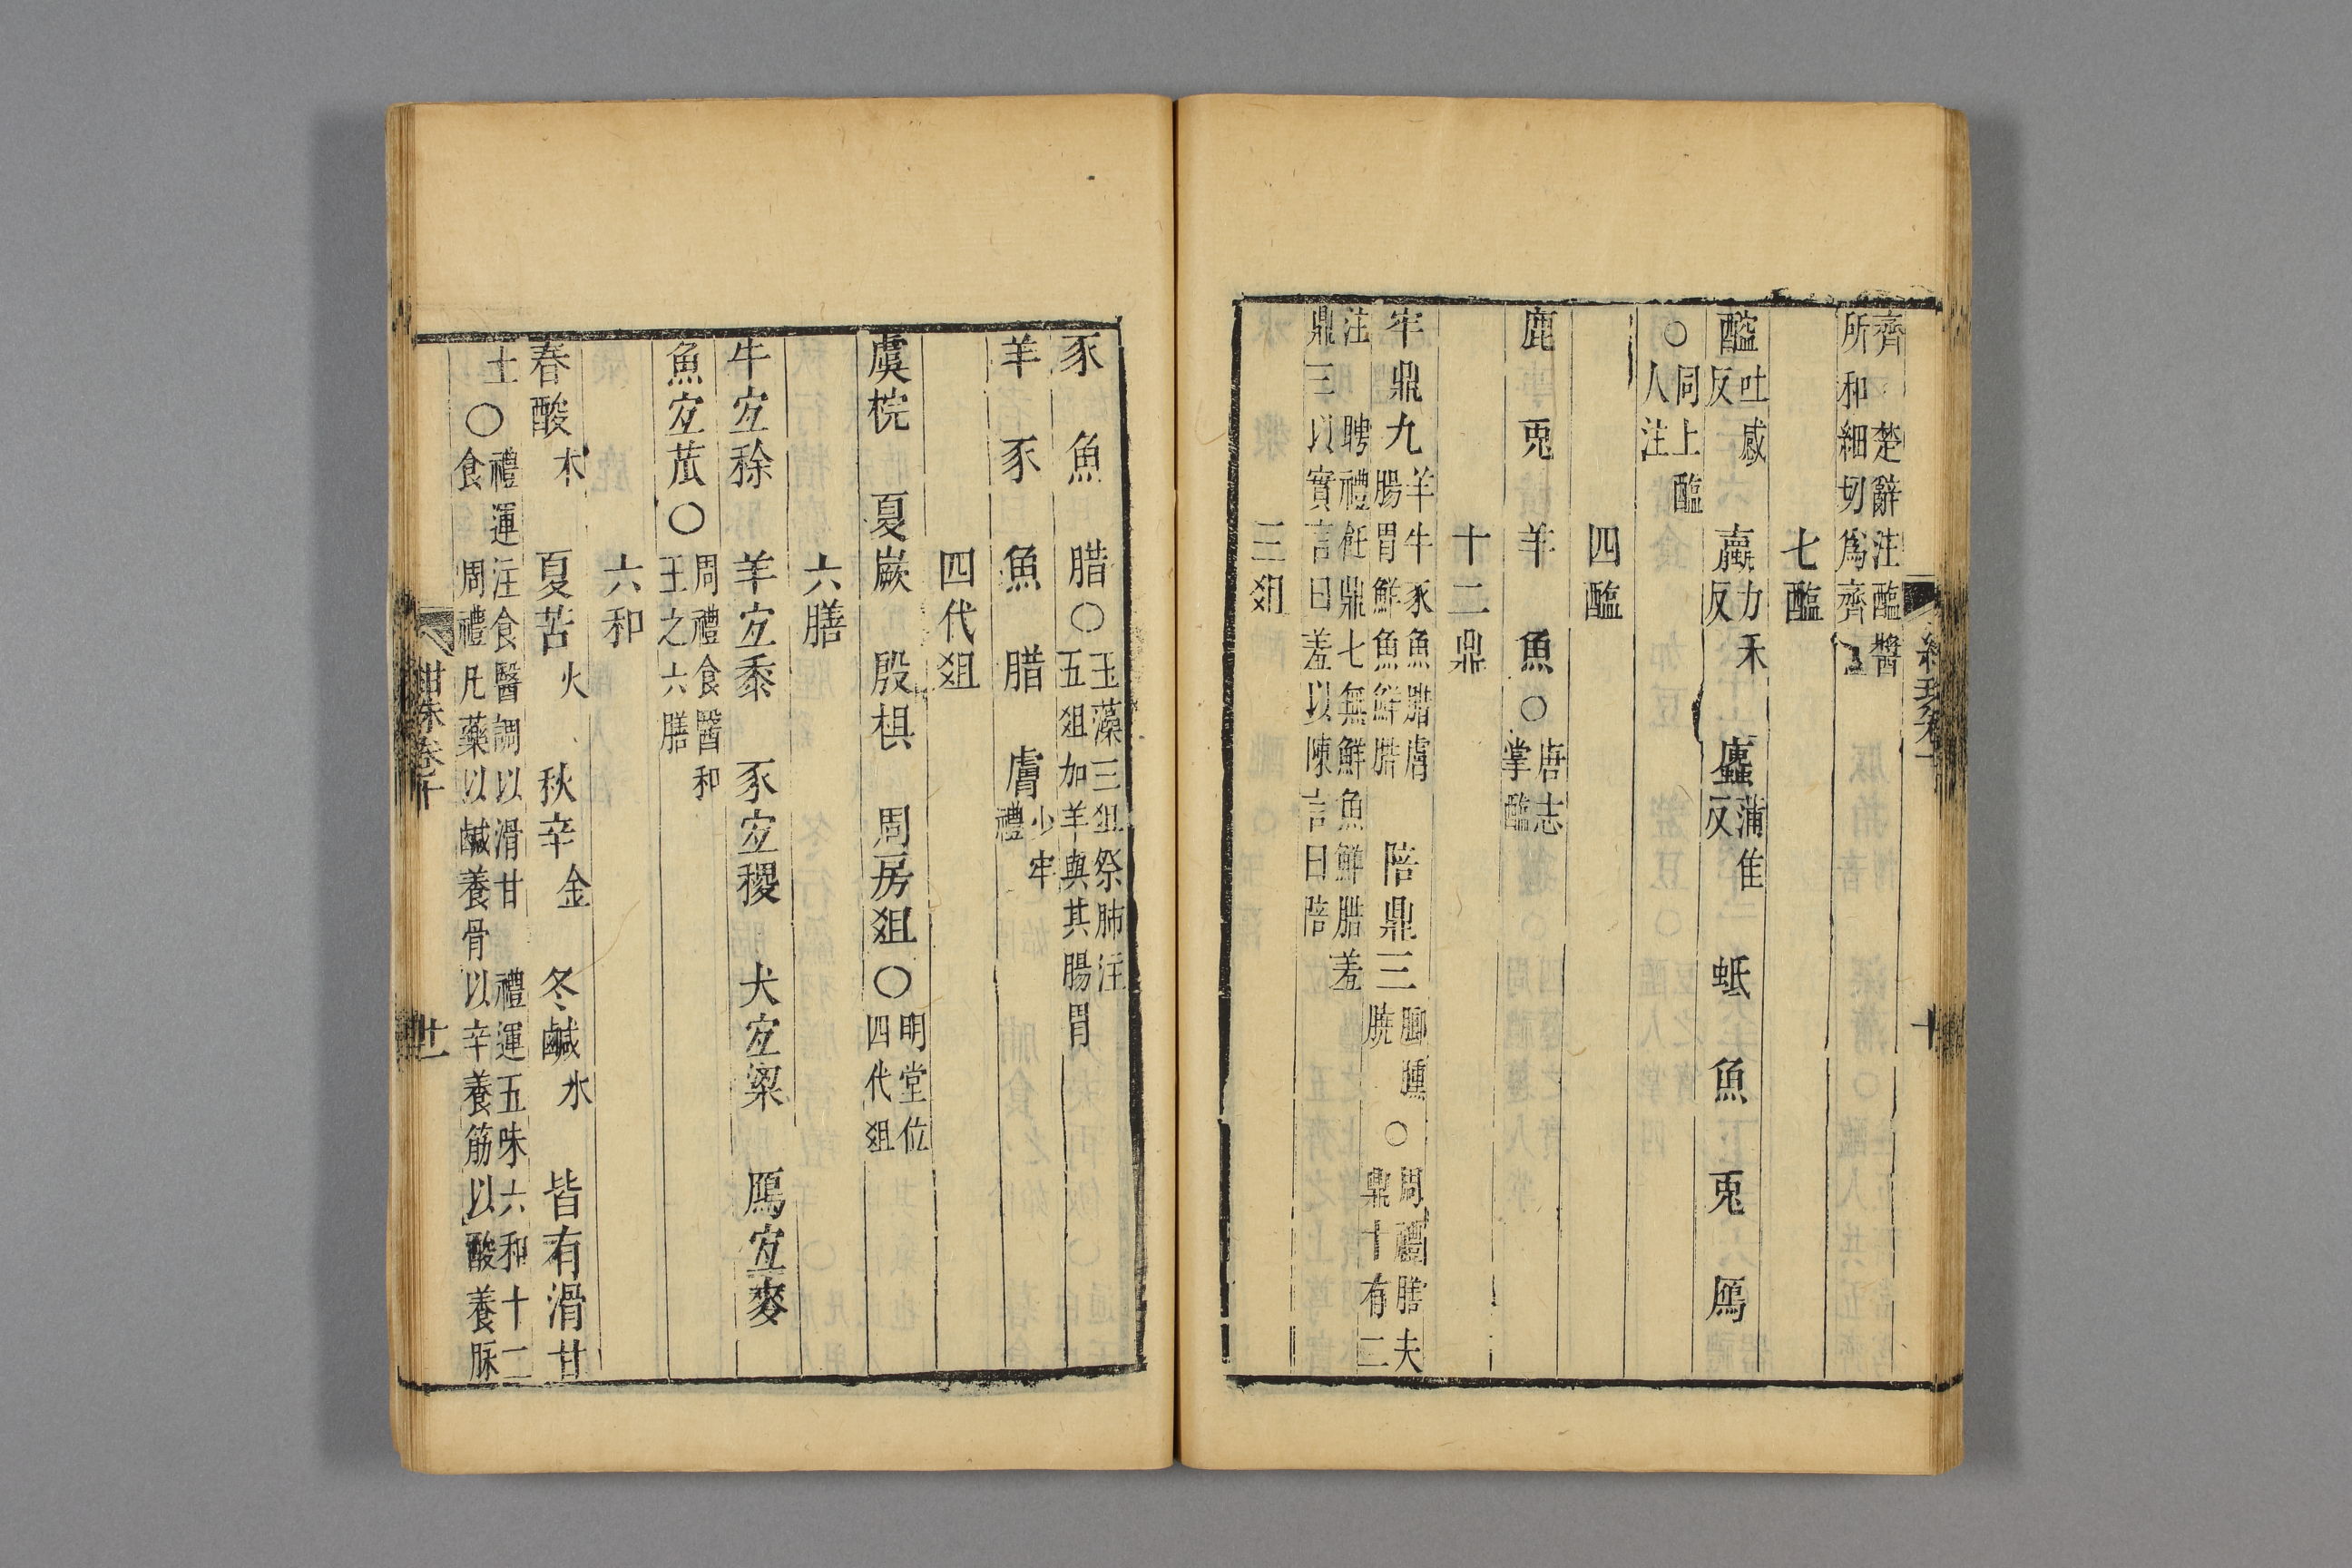 齊 楚辭注醢醬
所和細切爲齊
七醢
醓吐感反 蠃力禾反 蠯蒲隹反 蚳 魚 兎 鴈
○同上醢人注
四醢
鹿 兎 羊 魚○唐志掌醢
十二鼎
牢鼎九羊牛豕魚腊膚腸胃鮮魚鮮腊 陪鼎三膷臐膮○周禮膳夫鼎十有二
注 聘禮飪鼎七無鮮魚鮮腊羞
鼎三以實言曰羞以陳言曰陪
三爼
豕 魚 腊○玉藻三爼祭肺注五爼加羊與其腸胃
羊 豕 魚 腊 膚少牢禮
四代爼
虞梡 夏嶡 殷椇 周房爼○明堂位四代爼
六膳
牛宐稌 羊宐黍 豕宐稷 犬宐粱 鴈宐麥
魚宐苽○周禮食醫和王之六膳
六和
春酸木 夏苦火 秋辛金 冬鹹水 皆有滑甘
土○禮運注食醫調以滑甘 禮運五味六和十二
食 周禮凡藥以鹹養骨以辛養筋以酸養脉
紺珠卷十
十一
十